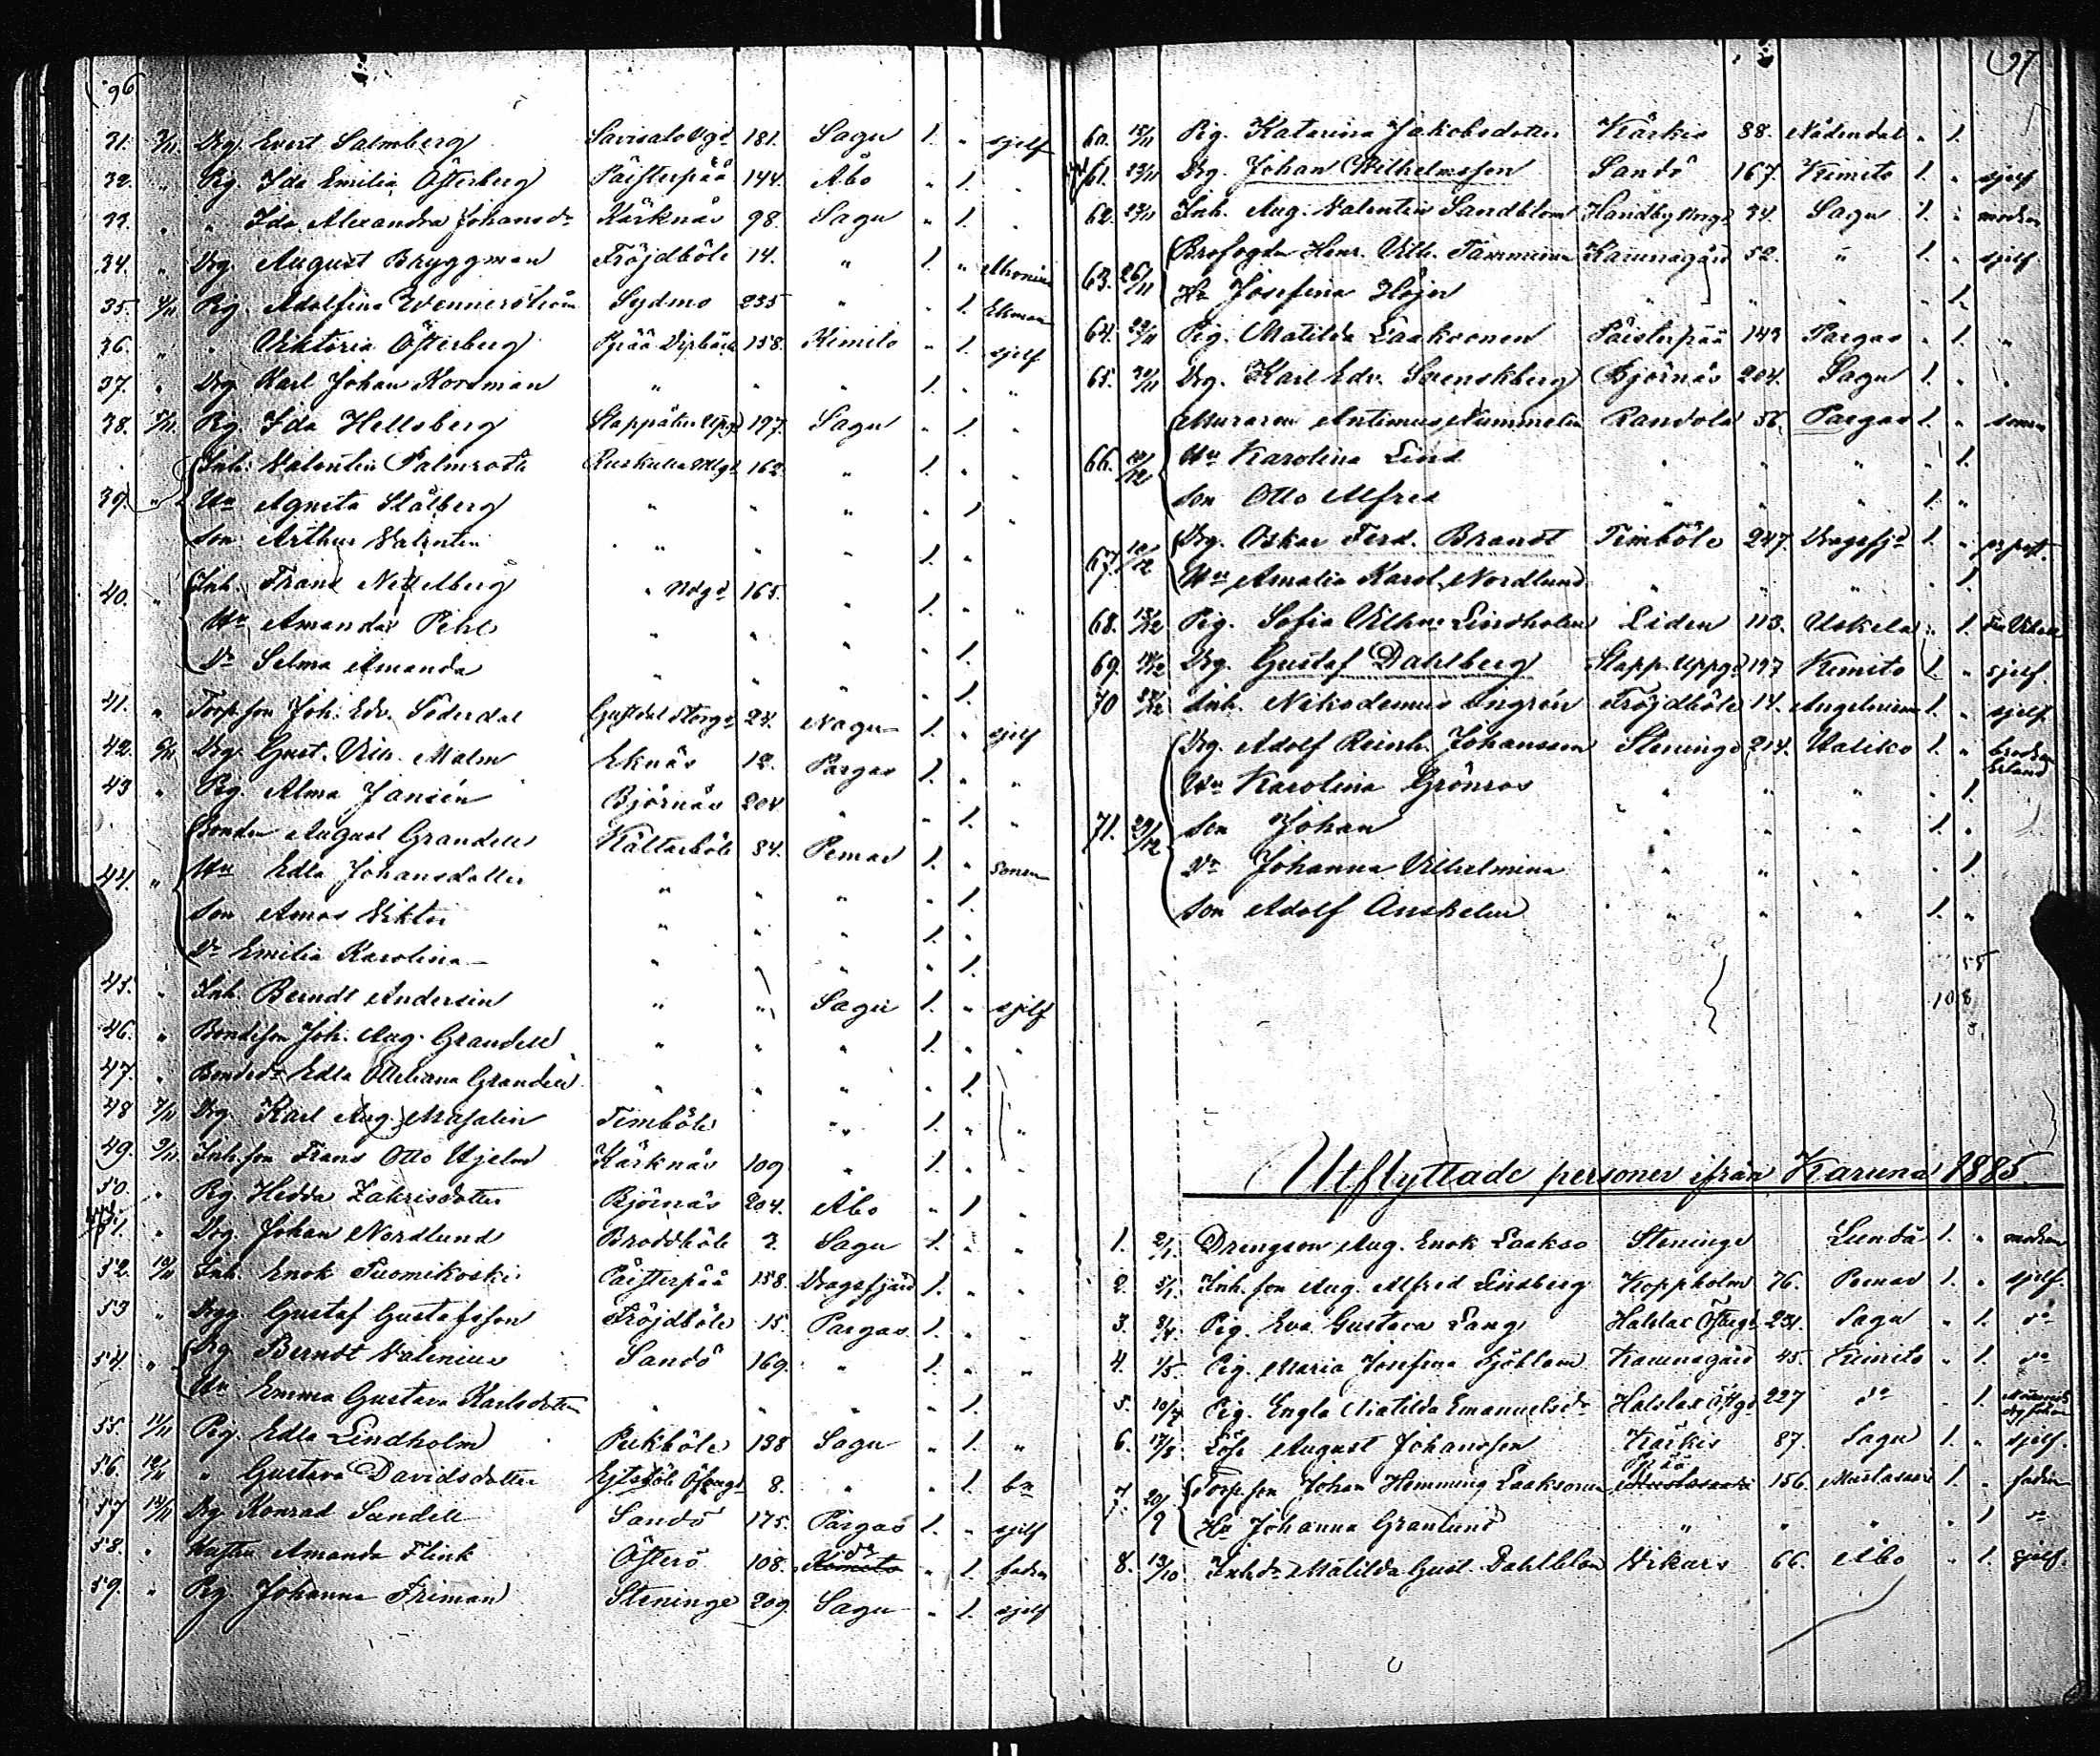 96
31. 3/11 Drg. Evert Salmberg Savisalo Ogd 181. Sagu 1. " sjelf
32. " Pig. Ida Emilia Österberg Päisterpää 144. Åbo " 1. "
33. " " Ida Alexandra Johansdr Kärknäs 98. Sagu " 1. "
34. " Drg. August Bryggman Fröjdböle 14. " 1. "
35. 4/11 Pig. Adolfina Wennerström Sydmo 235 " " 1. Ekman
36. " " Viktoria Österberg Ppää 158. Kimito " 1. sjelf
37. " Drg. Karl Johan Korsman " " " 1. "
38. 5/11 Pig. Ida Hellsberg Stappäter Uppgd 197. Sagu " 1. "
39. " Inh. Valentin Palmroth Ruskula 162 " 1. " "
Hu Agneta Stålberg " " " " 1 "
Son Arthur Valentin " " " 1. "
40. " Inh. Frans Nettelberg " Ndgd 165. " 1. " "
Hu Amanda Pihl " " " " 1.
Dr Selma Amanda " " " " 1.
41. " Torp. son Joh. Edv. Söderdal Gustdal Storgd 24. Nagu 1. " sjelf
42. 6/11 Drg. Gust. Vilh. Malm Eknäs 12. Pargas 1. " "
43 " Pig. Alma Jansén Björnäs 204 " " 1. "
44. " Bonden August Grandell Kättarböle 84. Pemar 1. " sonen
Hu Edla Johansdotter " " " " 1.
Son Amos Viktor " " " 1. "
Dr Emilia Karolina " " " " 1.
45. " Inh. Berndt Andersin " " Sagu 1. " sjelf
46. " Bondeson Joh. Aug. Grandell " " " 1. " "
47. " Bondedr Edla Ottiliana Grandell " " " " 1.
48 7/11 Drg. Karl Aug. Masalin Timböle " 1. " "
49. 9/11 Inh. son Frans Otto Hjelm Kärknäs 109 " 1. " "
50. " Pig. Hedda Zakrisdotter Björnäs 204. Åbo " 1 "
51. " Drg. Johan Nordlund Broddböle 3. Sagu 1. " "
52. 10/11 Inh. Enok Tuomikoski Päisterpää 158. Dragsfjärd 1. " "
53 " Drg. Gustaf Gustafsson Fröjdböle 15. Pargas 1. " "
54 " Drg Berndt Valenius Sandö 169. " 1. " "
Hu Emma Gustava Karlsdotter " " " " 1.
55. 11/11 Pig. Edla Lindholm Pukböle 138 Sagu " 1. "
56. 12/11 " Gustava Davidsdotter Eytsböle 8. " " 1. bn
57 13/11 Drg Konrad Sandell Sandö 175. Pargas 1. " sjelf
58. " Hustru Amanda Flink Österö 108. Kimito do " 1. fadren
59. " Pig. Johanna Friman Steninge 209. Sagu " 1. sjelf
97
60. 15/11 Pig. Katarina Jakobsdotter Kärkis 88. Nådendal " 1.
61. 23/11 Drg. Johan Wilhelmsson Sandö 167. Kimito 1. " sjelf
62. 25/11 Inh. Aug. Valentin Sandblom Handby 34. Sagu 1. " modren
63. 26/11 Brofogden Henr. Vilh. Tamminen Karunagård 52. " 1. " sjelf
Hu Josefina Höjer " " " " 1.
64. 29/11 Pig. Matilda Laaksonen Päisterpää 143 Pargas " 1. "
65. 30/11 Drg. Karl Edv. Svenskberg Björnäs 204. Sagu 1. " "
66. 10/12 Muraren Antimus Nummelin Randola 56. Pargas 1. " sonen
Hu Karolina Lind " " " " 1.
Son Otto Alfred " " " 1. "
67. 10/12 Drg. Oskar Ferd. Brandt Timböle 247. Dragsfjd 1. " pr post.
Hu Amalia Karol. Nordlund " " " " 1.
68. 13/12 Pig. Sofia Vilhna Lindholm Liden 113. Uskela " 1.
69. 14/12 Drg. Gustaf Dahlberg Stapp. Uppgd 197 Kimito 1. " sjelf.
70 28/12 Inh. Nikodemus Engrén Fröjdböle 14. Angelniemi 1. " sjelf
71. 29/12 Drg. Adolf Reinh. Johansson Steninge 214. Halikko 1. " brodren Erland
Hu Karolina Grönros " " " " 1.
Son Johan " " " 1. "
Dr Johanna Vilhelmina " " " " 1.
Son Adolf Anshelm " " " 1. "
55
108
Utflyttade personer ifrån Karuna 1885.
1. 2/1. Drengson Aug. Enok Laakso Steninge Lundå 1. " modren
2. 5/1. Inh. son Aug. Alfred Lindberg Koppholm 76. Pemar 1. " sjelf.
3. 8/4 Pig. Eva Gustava Lang Halslax Öfregd 231. Sagu " 1. do
4. 1/5 Pig. Maria Josefina Sjöblom Karunagård 45. Kimito " 1. do
5. 10/7 Pig. Engla Matilda Emanuelsdr Halslax Öfregd 227 do " 1.
6. 17/8 Löse August Johansson Kärkis 87. Sagu 1. " sjelf.
7. 20/9 Torp. son Johan Hemming Laaksonen Ppää Mustasaari 156. Mustasaari 1. " fadren
Hu Johanna Granlund " " " " 1 do
8. 13/10 Inh.dr Matilda Gust. Dahlblom Vikars 66. Åbo " 1. sjelf.